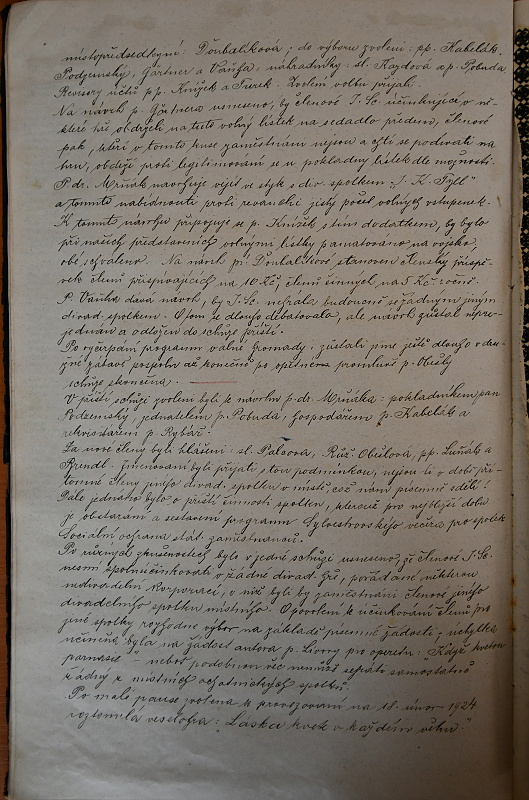 místopředsedkyně: Doubalíková; do výboru zvoleni: pp. Kabelák,
Podzemský, Gärtner a Vaňha, náhradníky: sl. Kajdová a p. Pobuda
Revisory účtů pp. Knížek a Turek. Zvolení volbu přijali.
Na návrh p. Gärtnera usneseno, by členové J.Sc. účinkující v ně-
které hře obdrželi na tuto volný lístek na sedadlo předem, členové
pak, kteří v tomto kuse zaměstnáni nejsou a chtí se podívati na
hru, obdrží proti legitimování se u pokladny lístek dle možnosti.
P. dr. Mrňák navrhuje vejíti ve styk s div. spolkem "J. K. Tyl"
a tomuto nabídnouti proti revanchi jistý počet volných vstupenek.
K tomuto návrhu připojuje se p. Knížek s tím dodatkem, by bylo
při našich představeních volnými lístky pamatováno na vojsko,
obé schváleno. Na návrh pí. Doubalíkové stanoven členský příspě-
vek členů přispívajících na 10 Kč, členů činných na 5 Kč ročně.
P. Vaňha dává návrh, by J.Sc. nehrála budoucně se žádným jiným
divad. spolkem. O tom se dlouho debatovalo, ale návrh zůstal nepro-
jednán a odložen do schůze příští.
Po vyčerpání programu valné hromady, zůstali jsme ještě dlouho v dru-
žné zábavě pospolu až konečně po opětném promluvě p. Obešly
schůze skončena.
V příští schůzi zvoleni byli k návrhu p. dr. Mrňáka: pokladníkem pan
Podzemský, jednatelem p. Pobuda, hospodářem p. Kabelák a
rekvisitářem p. Rybář.
Za nové členy byli hlášeni: sl. Palsová, Růž. Obešlová, pp. Luňák a
Brendl. Jmenovaní byli přijati s tou podmínkou, nejsou-li v době pří-
tomné členy jiného divad. spolku v místě, což nám písemně sdělí!
Dále jednáno bylo o příští činnosti spolku, kterouž pro nejbližší dobu
je obstarání a sestavení programu Sylvestrovského večírku pro spolek
Sociální ochrana stát. zaměstnanců.
Po různých zkušenostech bylo v jedné schůzi usneseno, že členové J.Sc.
nesmí spoluúčinkovati v žádné divad. hře, pořádané některou
nedivadelní korporací, v níž byli by zaměstnáni členové jiného
divadelního spolku místního. O povolení k účinkování členů pro
jiné spolky rozhodne výbor na základě písemné žádosti, nebylka
učiněna byla na žádost autora p. Livory pro operetu: "Když kvetou
parnasie" - neboť podobnou věc nemůže sehráti samostatně
žádný z místních ochotnických spolků.
Po malé pause zvolena k provozování na 18. únor 1924
roztomilá veselohra: "Láska kvete v každém věku."